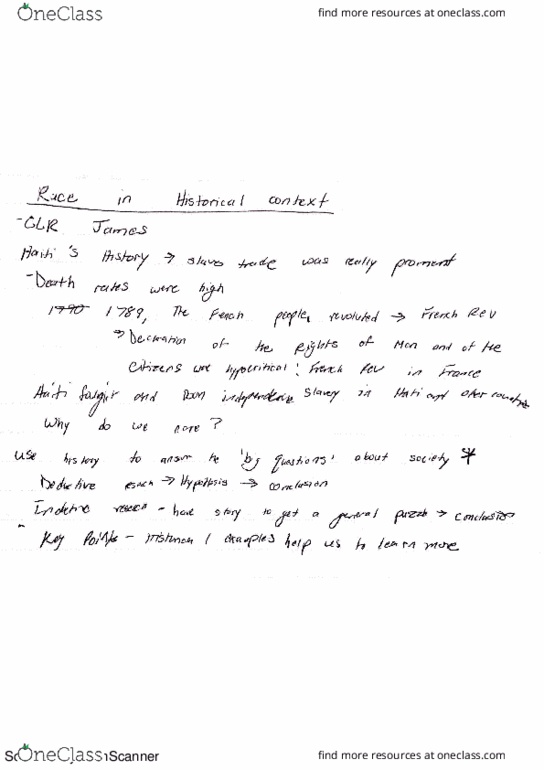 OneClass
find more resources at oneclass.com
Race in Historical context
- CLR James
Haiti's History → slaves trade was really proment
- Death rates were high
1790 1789, The Fench people, revoluted → French Rev
→ Declration of the Rights of Man and of the
Citizens were hypocritical: French Rev in France
Haiti and independence Slavery in Hati and other
Why do we care?
use history to answr the 'big questions' about society *
Deductive → Hypothesis → conclusion
- have story to get a general puzzle → conclusion
- Key Points - Historical examples help us to learn more
OneClass Scanner
find more resources at oneclass.com